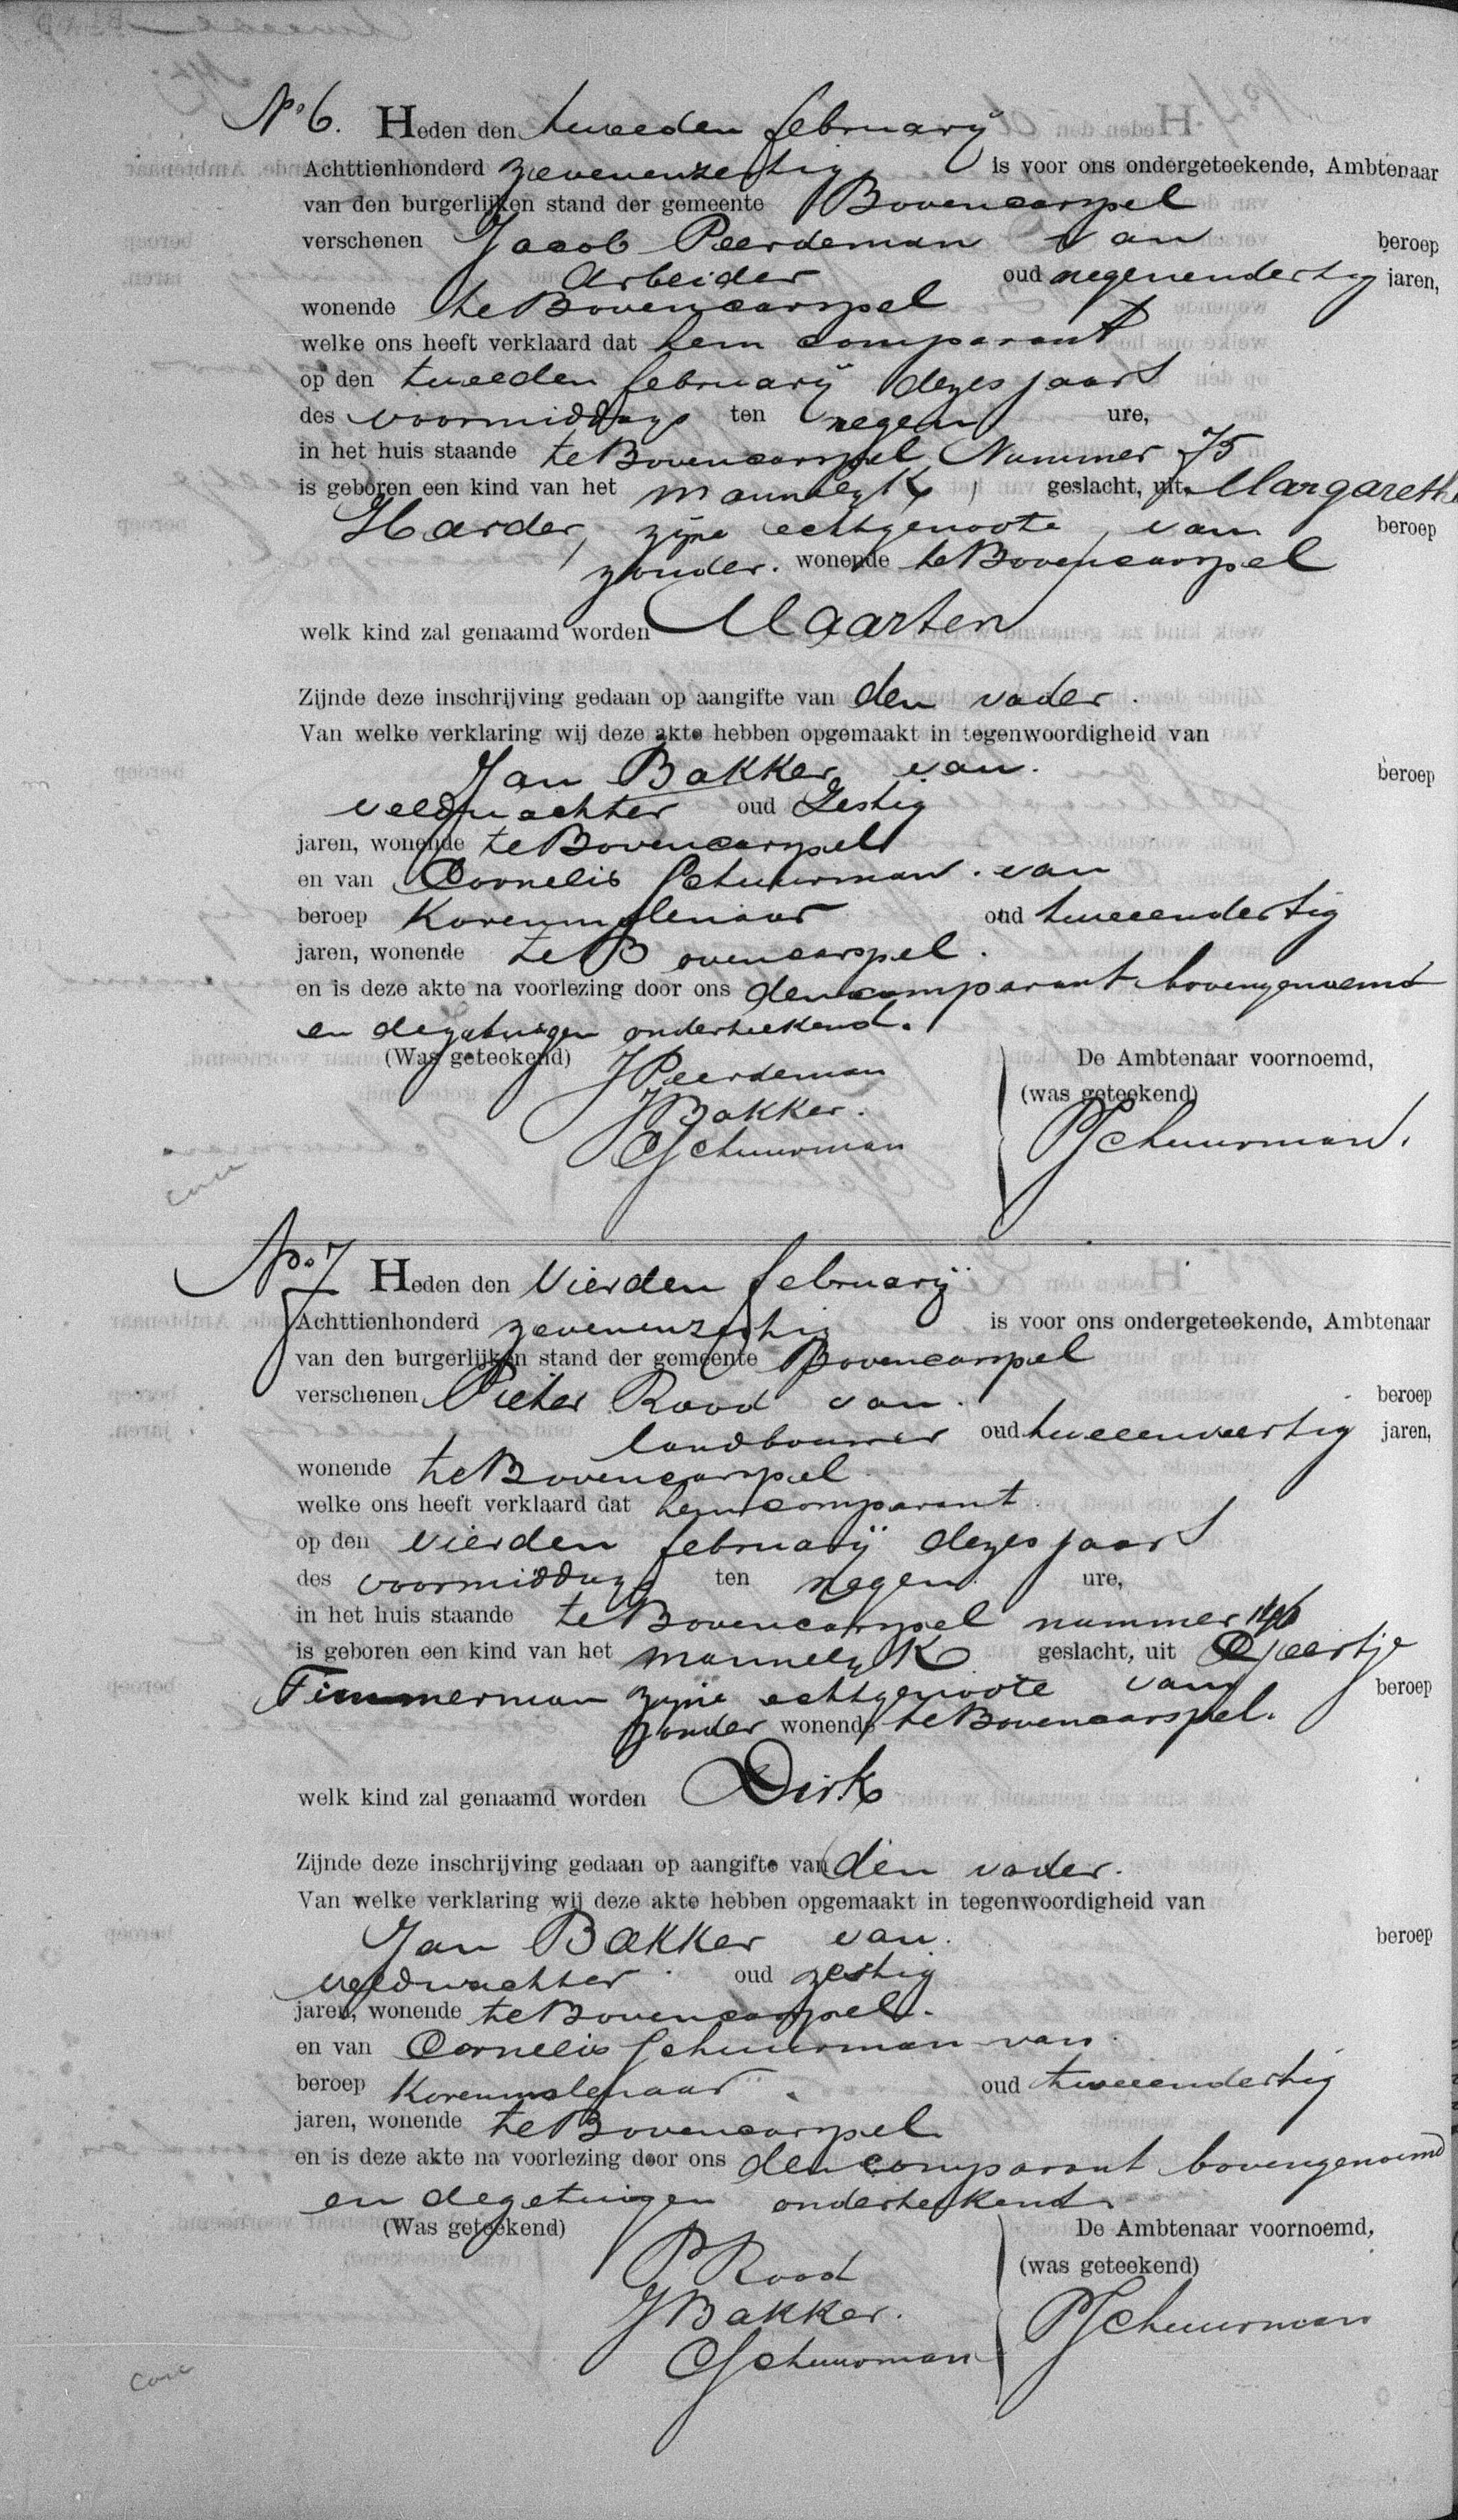 No. 6. Heden den tweeden februarij
Achttienhonderd zevenenzestig is voor ons ondergeteekende, Ambtenaar
van den burgerlijken stand der gemeente Bovencarspel
verschenen Jacob Peerdeman van beroep
Arbeider oud negenendertig jaren,
wonende te Bovencarspel
welke ons heeft verklaard dat hem comparant
op den tweeden februarij dezes jaars
des voormiddags ten negen ure,
in het huis staande te Bovencarspel Nummer 75
is geboren een kind van het mannelijk geslacht, uit Margaretha
Harder, zijne echtgenoote, van beroep
zonder. wonende te Bovencarspel
welk kind zal genaamd worden Maarten
Zijnde deze inschrijving gedaan op aangifte van den vader.
Van welke verklaring wij deze akte hebben opgemaakt in tegenwoordigheid van
Jan Bakker van. beroep
veldwachter oud Zestig
jaren, wonende te Bovencarspel
en van Cornelis Schuurman. van
beroep Korenmolenaar oud tweeendertig
jaren, wonende te Bovencarspel.
en is deze akte na voorlezing door ons den comparant bovengenoemd
en de getuigen onderteekend.
(Was geteekend) J Peerdeman De Ambtenaar voornoemd,
J Bakker. (was geteekend)
C Schuurman P Schuurman.
No. 7 Heden den Vierden februarij
Achttienhonderd zevenenzestig is voor ons ondergeteekende, Ambtenaar
van den burgerlijken stand der gemeente Bovencarspel
verschenen Pieter Rood van. beroep
landbouwer oud tweeenveertig jaren,
wonende te Bovencarspel
welke ons heeft verklaard dat hem comparant
op den vierden februarij dezes jaars
des voormiddags ten negen ure,
in het huis staande te Bovencarspel nummer
is geboren een kind van het mannelijk geslacht, uit Geertje
Timmerman zijne echtgenoote van beroep
zonder wonende te Bovencarspel.
welk kind zal genaamd worden Dirk
Zijnde deze inschrijving gedaan op aangifte van den vader.
Van welke verklaring wij deze akte hebben opgemaakt in tegenwoordigheid van
Jan Bakker van. beroep
veldwachter oud zestig
jaren, wonende te Bovencarspel.
en van Cornelis Schuurman van
beroep Korenmolenaar. oud tweeendertig
jaren, wonende te Bovencarspel
en is deze akte na voorlezing door ons den comparant bovengenoemd
en de getuigen onderteekend
(Was geteekend) P Rood De Ambtenaar voornoemd,
J Bakker. (was geteekend)
C Schuurman P Schuurman